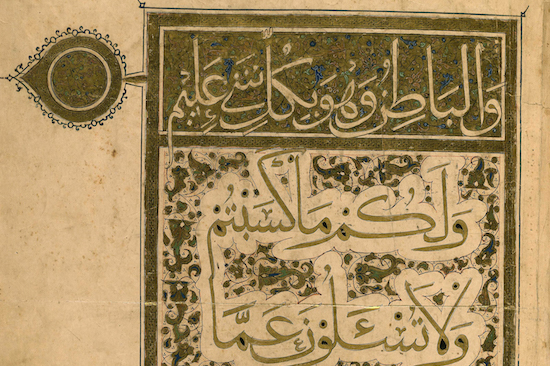 وَالْبَاطِنُ وَهُوَ بِكُلِّ شَيْءٍ عَلِيمٌ
وَلَكُمْ مَا كَسَبْتُمْ
وَلَا تُسْئَلُونَ عَمَّا